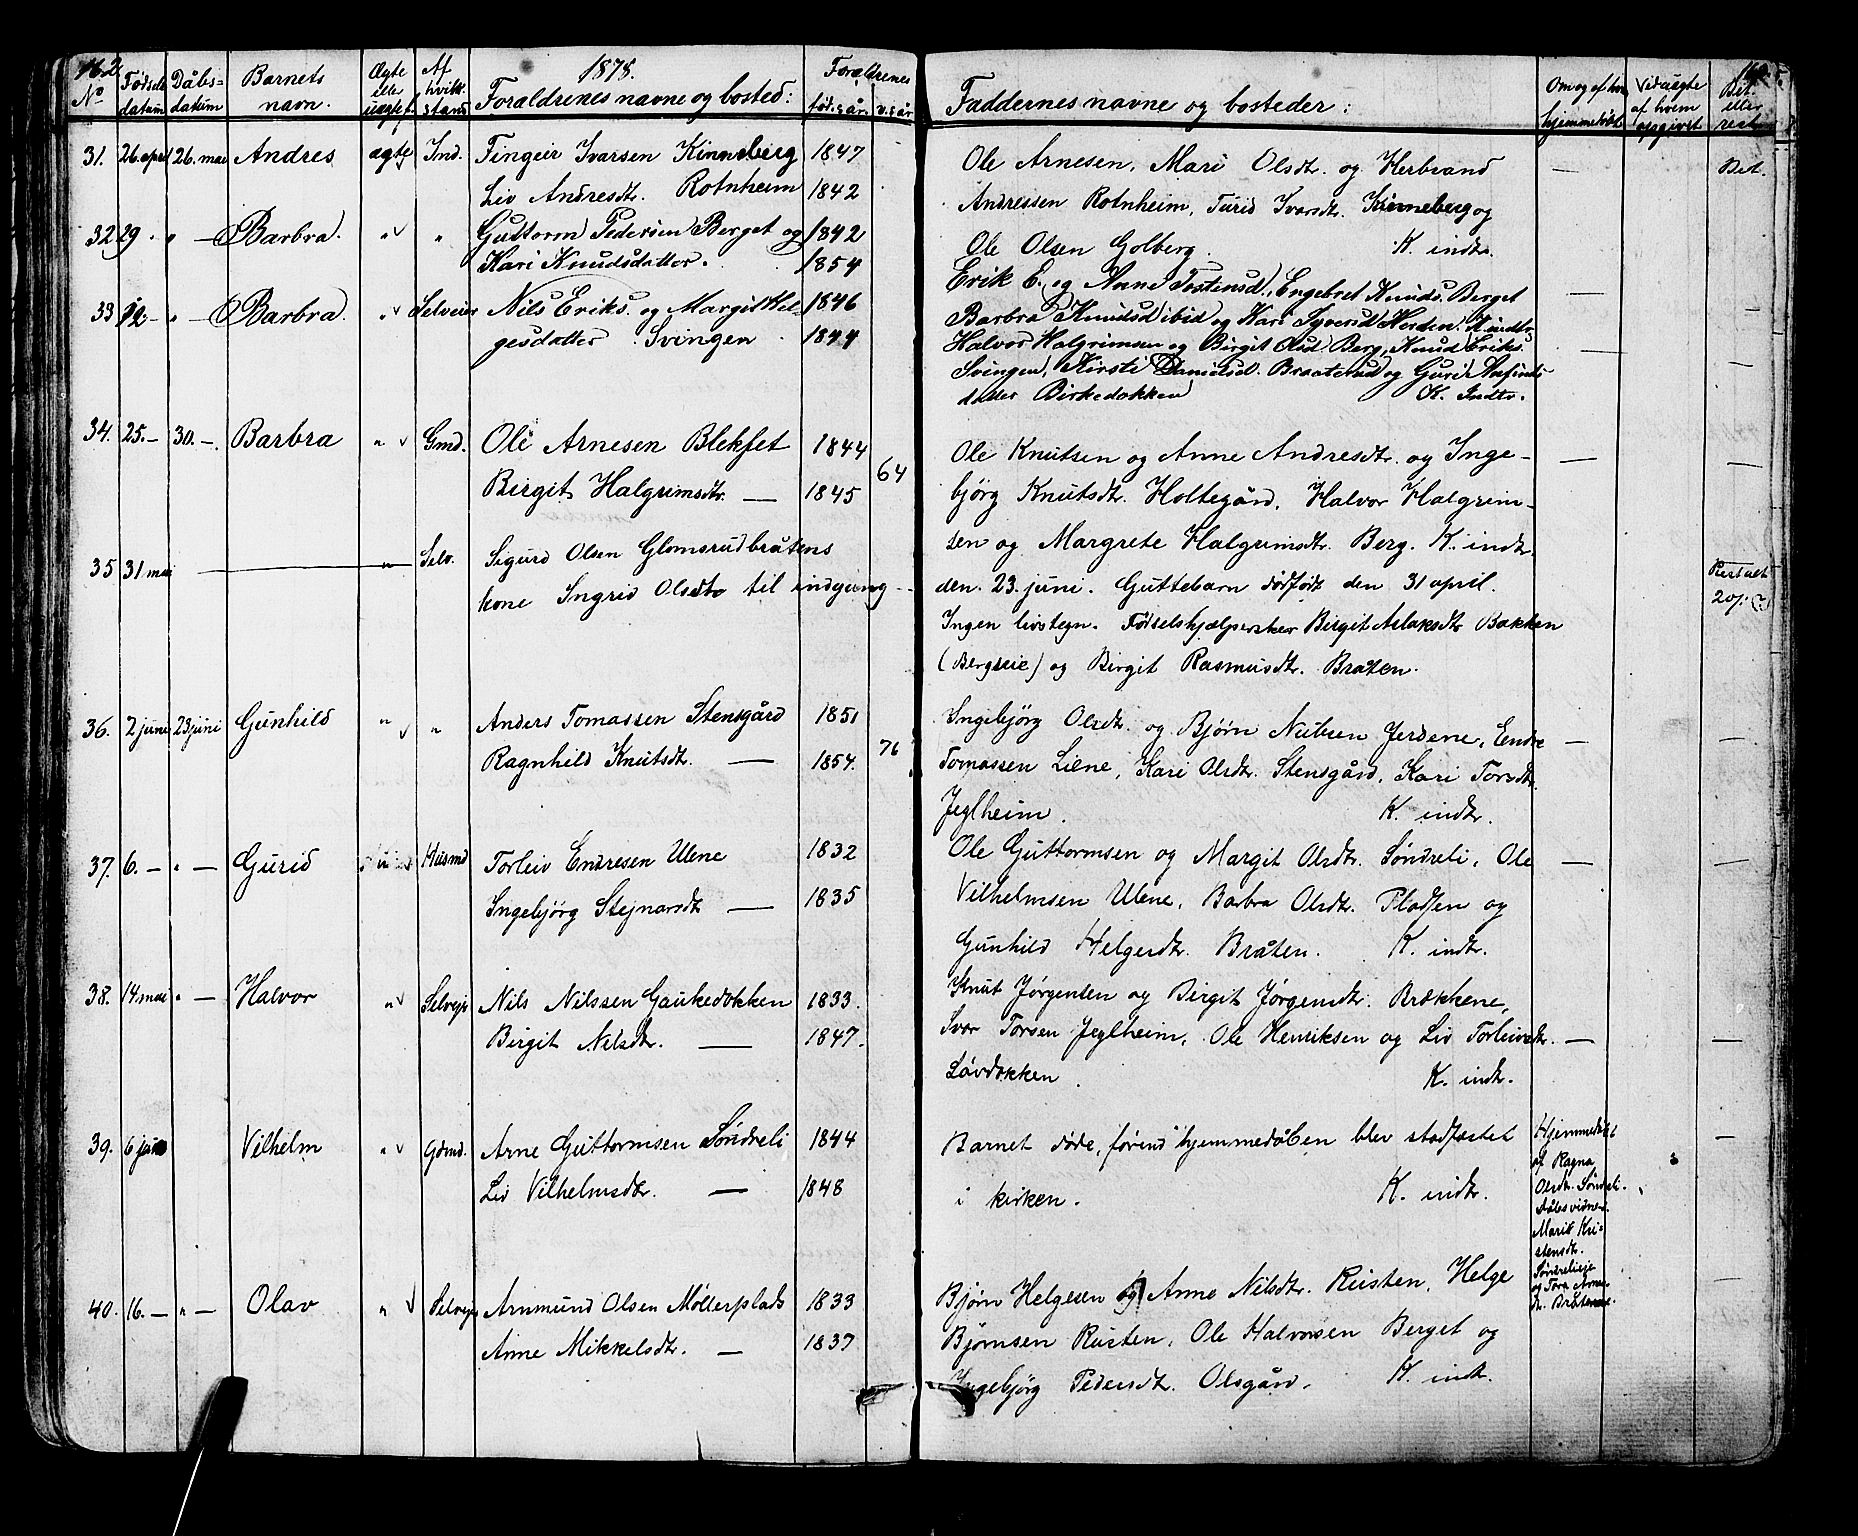 162
1878.
No
Fødsels datum
Dåbs- datum
Barnets navn.
Ægte eller uægte
Af hvilk. stand
Foraldrenes navne og bosted:
Foraldrenes føds.år. v.s år
Faddernes navne og bosteder:
Om og af hv. hjemmedøbt
Ved uægte af hvem opgivet
Bet. eller rest
31. 26 april 26. mai Andres ægte Ind. Tingeir Ivarsen Kinneberg 1847
Liv Andresdtr. Rotnheim 1842
Ole Arnesen, Mari Olsdtr. og Herbrand — Bet.
Andressen Rotnheim, Turid Ivarsdtr. Kinneberg og
Ole Olsen Golberg. K. indtr.
32. 29 " — Barbra. " " Guttorm Pedersen Berget og 1842
Kari Knudsdatter. 1854
Erik E. og Anne Tostensd, Engebret Knuds. Berget —
Barbra Knudsd ibid og Kari Syversd Horden. K indtr.
33 12 — " — Barbra " Selveier Nils Eriks. og Margit Hel- 1846
gesdatter Svingen 1844
Halvor Halgrimsen og Birgit Olsd Berg, Knud Eriks. —
Svingen, Kirsti Danielsd. Braaterud og Guri
datter Birkedokken K. Indtr.
34. 25. — 30. — Barbra " Gmd. Ole Arnesen Blekset 1844 64
Birgit Halgrimsdtr. — 1845
Ole Knutsen og Anne Andresdtr. og Inge- —
bjørg Knutsdtr. Holtegård, Halvor Halgrim-
sen og Margrete Halgrimsdtr. Berg. K. indtr.
35 31 mai — " Selv. Sigurd Olsen Glomsrudbråtens
kone Ingrid Olsdtr til indgang
den 23. juni. Guttebarn dødfødt den 31 april.
Ingen livstegn. Fødselshjælpersker Birgit Aslaksdtr Bakken
(Bergseie) og Birgit Rasmusdtr. Bråten.
36. 2 juni 23 juni Gunhild " " Anders Tomassen Stensgård 1851 76
Ragnhild Knutsdtr. — 1854.
Ingebjørg Olsdtr. og Bjørn Nielsen Jerdene, Endre —
Tomassen Liene, Kari Olsdtr. Stensgård, Kari Torsdtr.
Jeglheim. K. indtr.
37. 6. — " — Gurid Husmd Torleiv Endresen Ulene 1832
Ingebjørg Stejnarsdtr — 1835
Ole Guttormsen og Margit Olsdtr. Søndreli, Ole —
Vilhelmsen Ulene, Barbra Olsdtr. Pladsen og
Gunhild Helgesdtr. Bråten. K. indtr.
38. 14 mai " — Halvor " Selvejr Nils Nilssen Gaukedokken 1833.
Birgit Nilsdtr. — 1847.
Knut Jørgensen og Birgit Jørgensdtr. Brækkene,
Ivar Torsen Jeglheim, Ole Henriksen og Liv Torleivsdtr. —
Løvdokken. K. indtr.
39. 6 juni Vilhelm " Gdmd. Arne Guttormsen Søndreli 1844
Liv Vilhelmsdtr. — 1848
Barnet døde, førend hjemmedåben blev stadfæstet
i kirken. K. indtr.
Hjemmedøbt
af Ragna
Olsdtr. Søndreli.
Dåbsvidner
Marit Kri-
stensdtr.
Søndrelieje
og Tora Arnes-
dtr. Bråtene.
40. 16. — " — Olav " Selvejr Arnmund Olsen Møllerplads 1833
Anne Mikkelsdtr. — 1837
Bjørn Helgesen og Anne Nilsdtr. Rusten, Helge
Bjørnsen Rusten, Ole Halvorsen Berget og
Ingebjørg Pedersdtr. Olsgård. K. indtr.